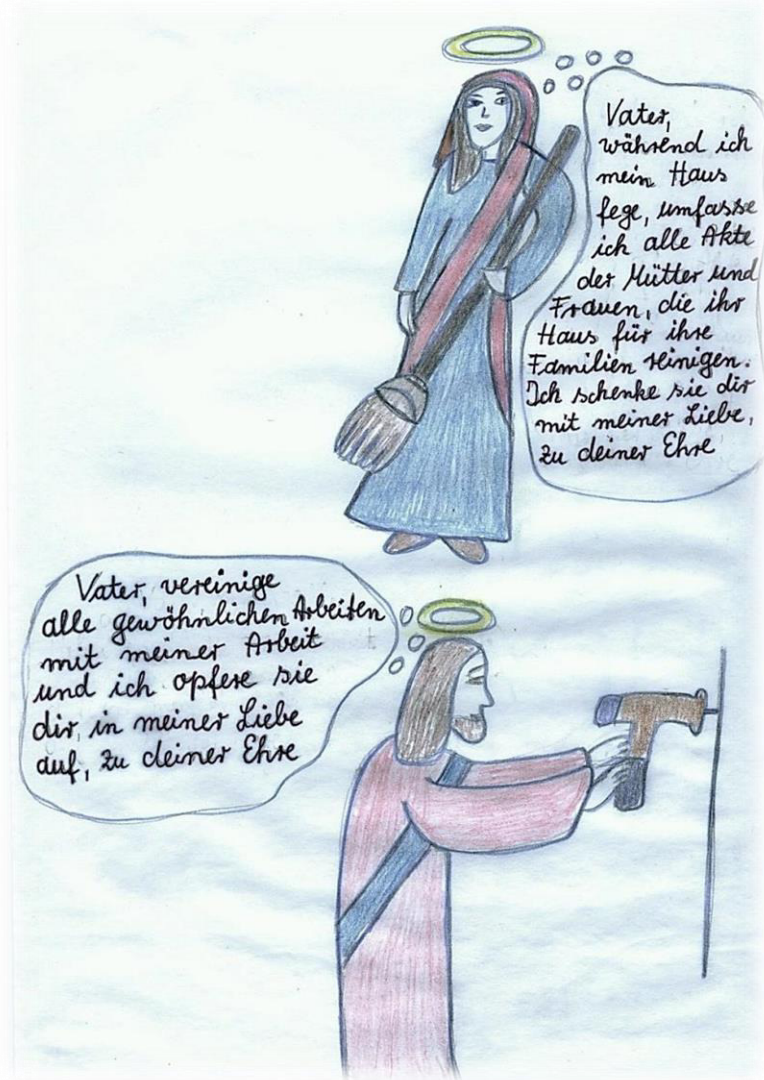 Vater,
während ich
mein Haus
fege, umfasse
ich alle Akte
der Mütter und
Frauen, die ihr
Haus für ihre
Familien reinigen.
Ich schenke sie dir
mit meiner Liebe,
zu deiner Ehre
Vater, vereinige
alle gewöhnlichen Arbeiten
mit meiner Arbeit
und ich opfere sie
dir, in meiner Liebe
auf, zu deiner Ehre